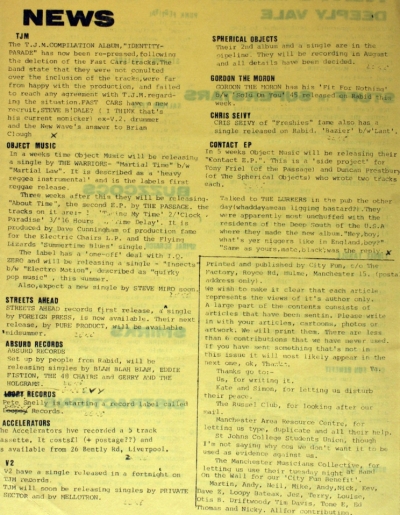 NEWS
TJM
The T.J.M.COMPILATION ALBUM,"IDENTITY-
PARADE" has now been re-pressed,following
the deletion of the Fast Cars tracks.The
band state that they were not consulted
over the inclusion of the tracks,were far
from happy with the production, and failed
to reach any agreement with T.J.M.regard-
ing the situation.FAST CARS have a new
recruit,STEVE
his current monicker) ex-V.2. drummer
and the New Wave's answer to Brian
Clough.
OBJECT MUSIC
In a weeks time Object Music will be releasing
a single by THE WARRIORS- "Martial Time" b/w
"Martial Law". It is described as a 'heavy
reggae instrumental' and in the labels 1st
reggae release.
Three weeks after this they will be releasing
'About Time', the second E.P. by THE PASSAGE. the
tracks on it are:
Paradise' 16 hours Time Delay'. It is
produced by Dave Cunningham of production fame
for the Electric Chairs L.P. and the Flying
Lizards 'Summertime Blues' single.
The label has a 'one-off' deal with I.Q.
ZERO and will be releasing a single - "Insects"
b/w "Electro Motion", described as "quirky
pop music" , this summer.
Also,expect a new single by STEVE MIRO soon.
STREETS AHEAD
STREETS AHEAD records first release, a single
by FOREIGN PRESS, is now available. Their next
release, by PURE PRODUCT, will be available
midsummer.
ABSURD RECORDS
ABSURD RECORDS
Set up by people from Rabid, will be
releasing singles by BLAH BLAH BLAH, EDDIE
FICTION, THE 48 CHAIRS and GERRY AND THE
HOLOGRAMS.
RECORDS
Pete Shelly is starting a record label called
Records.
ACCELERATORS
The Accelerators hve recorded a 5 track
cassette, It costs£1 (+ postage??) and
is available from 26 Bently Rd, Liverpool.
V2
V2 have a single released in a fortnight on
TJM records.
TJM will soon be releasing singles by PRIVATE
SECTOR and by MELLOTRON.
DEEPLY VALE
SPHERICAL OBJECTS
Their 2nd album and a single are in the
pipeline. They will be recording in August
and all details have been decided.
GORDON THE MORON
GORDON THE MORON has his 'Fit For Nothing'
b/w 'Sold on You' released on Rabid this
week.
CHRIS SEIVY
CHRIS SEIVY of "Freshies" fame also has a
single released on Rabid. b/w'Last'.
CONTACT EP
In 5 weeks Object Music will be releasing their
"Kontact E.P.". This is a 'side project' for
Tony Friel (of the Passage) and Duncan Prestbury
(of The Spherical Objects) who wrote two tracks
each.
Talked to THE LURKERS in the pub the other
day(whaddayamean ligging bastard?.They
were apparently most unchuffed with the
residents of the Deep South of the U.S.A.
where they made the new album."Hey,boy,
what's yer niggers like in England,boy?"
"Same as yours,mate,black,was the reply.
Printed and published by City Fun, c/o The
Factory, Royce Rd, Hulme, Manchester 15. (postal
address only).
We wish to make it clear that each article
represents the views of it's author only.
A large part of the contents consists of
articles that have been sentin. Please write
in with your articles, cartoons, photos or
artwork. We will print them. There are less
than 6 contributions that we have never used.
If you have sent something that's not in
this issue it will most likely appear in the
next one, ok. Thanks.
Thanks up to:-
Us, for writing it.
Kate and Simon, for letting us disturb
their peace.
The Russel Club, for looking after our
mail.
Manchester Area Resource Centre, for
letting us type, duplicate and all their help.
St Johns College Students Union, though
I'm not saying why cos we don't want it to be
used as evidence against us.
The Manchester Musicians Collective, for
letting us use their tuesday night at Band
on the Wall for our 'City Fun Benefit'.
Martin, Andy, Neil, Mike, Andy,Nick, Kev,
Dave X, Loopy Bataan, Jez, Terry, Louise,
Otis B. Driftwood, Tim Davis, Tone E, Ed
Thomas and Nicky. Allfor contributions.